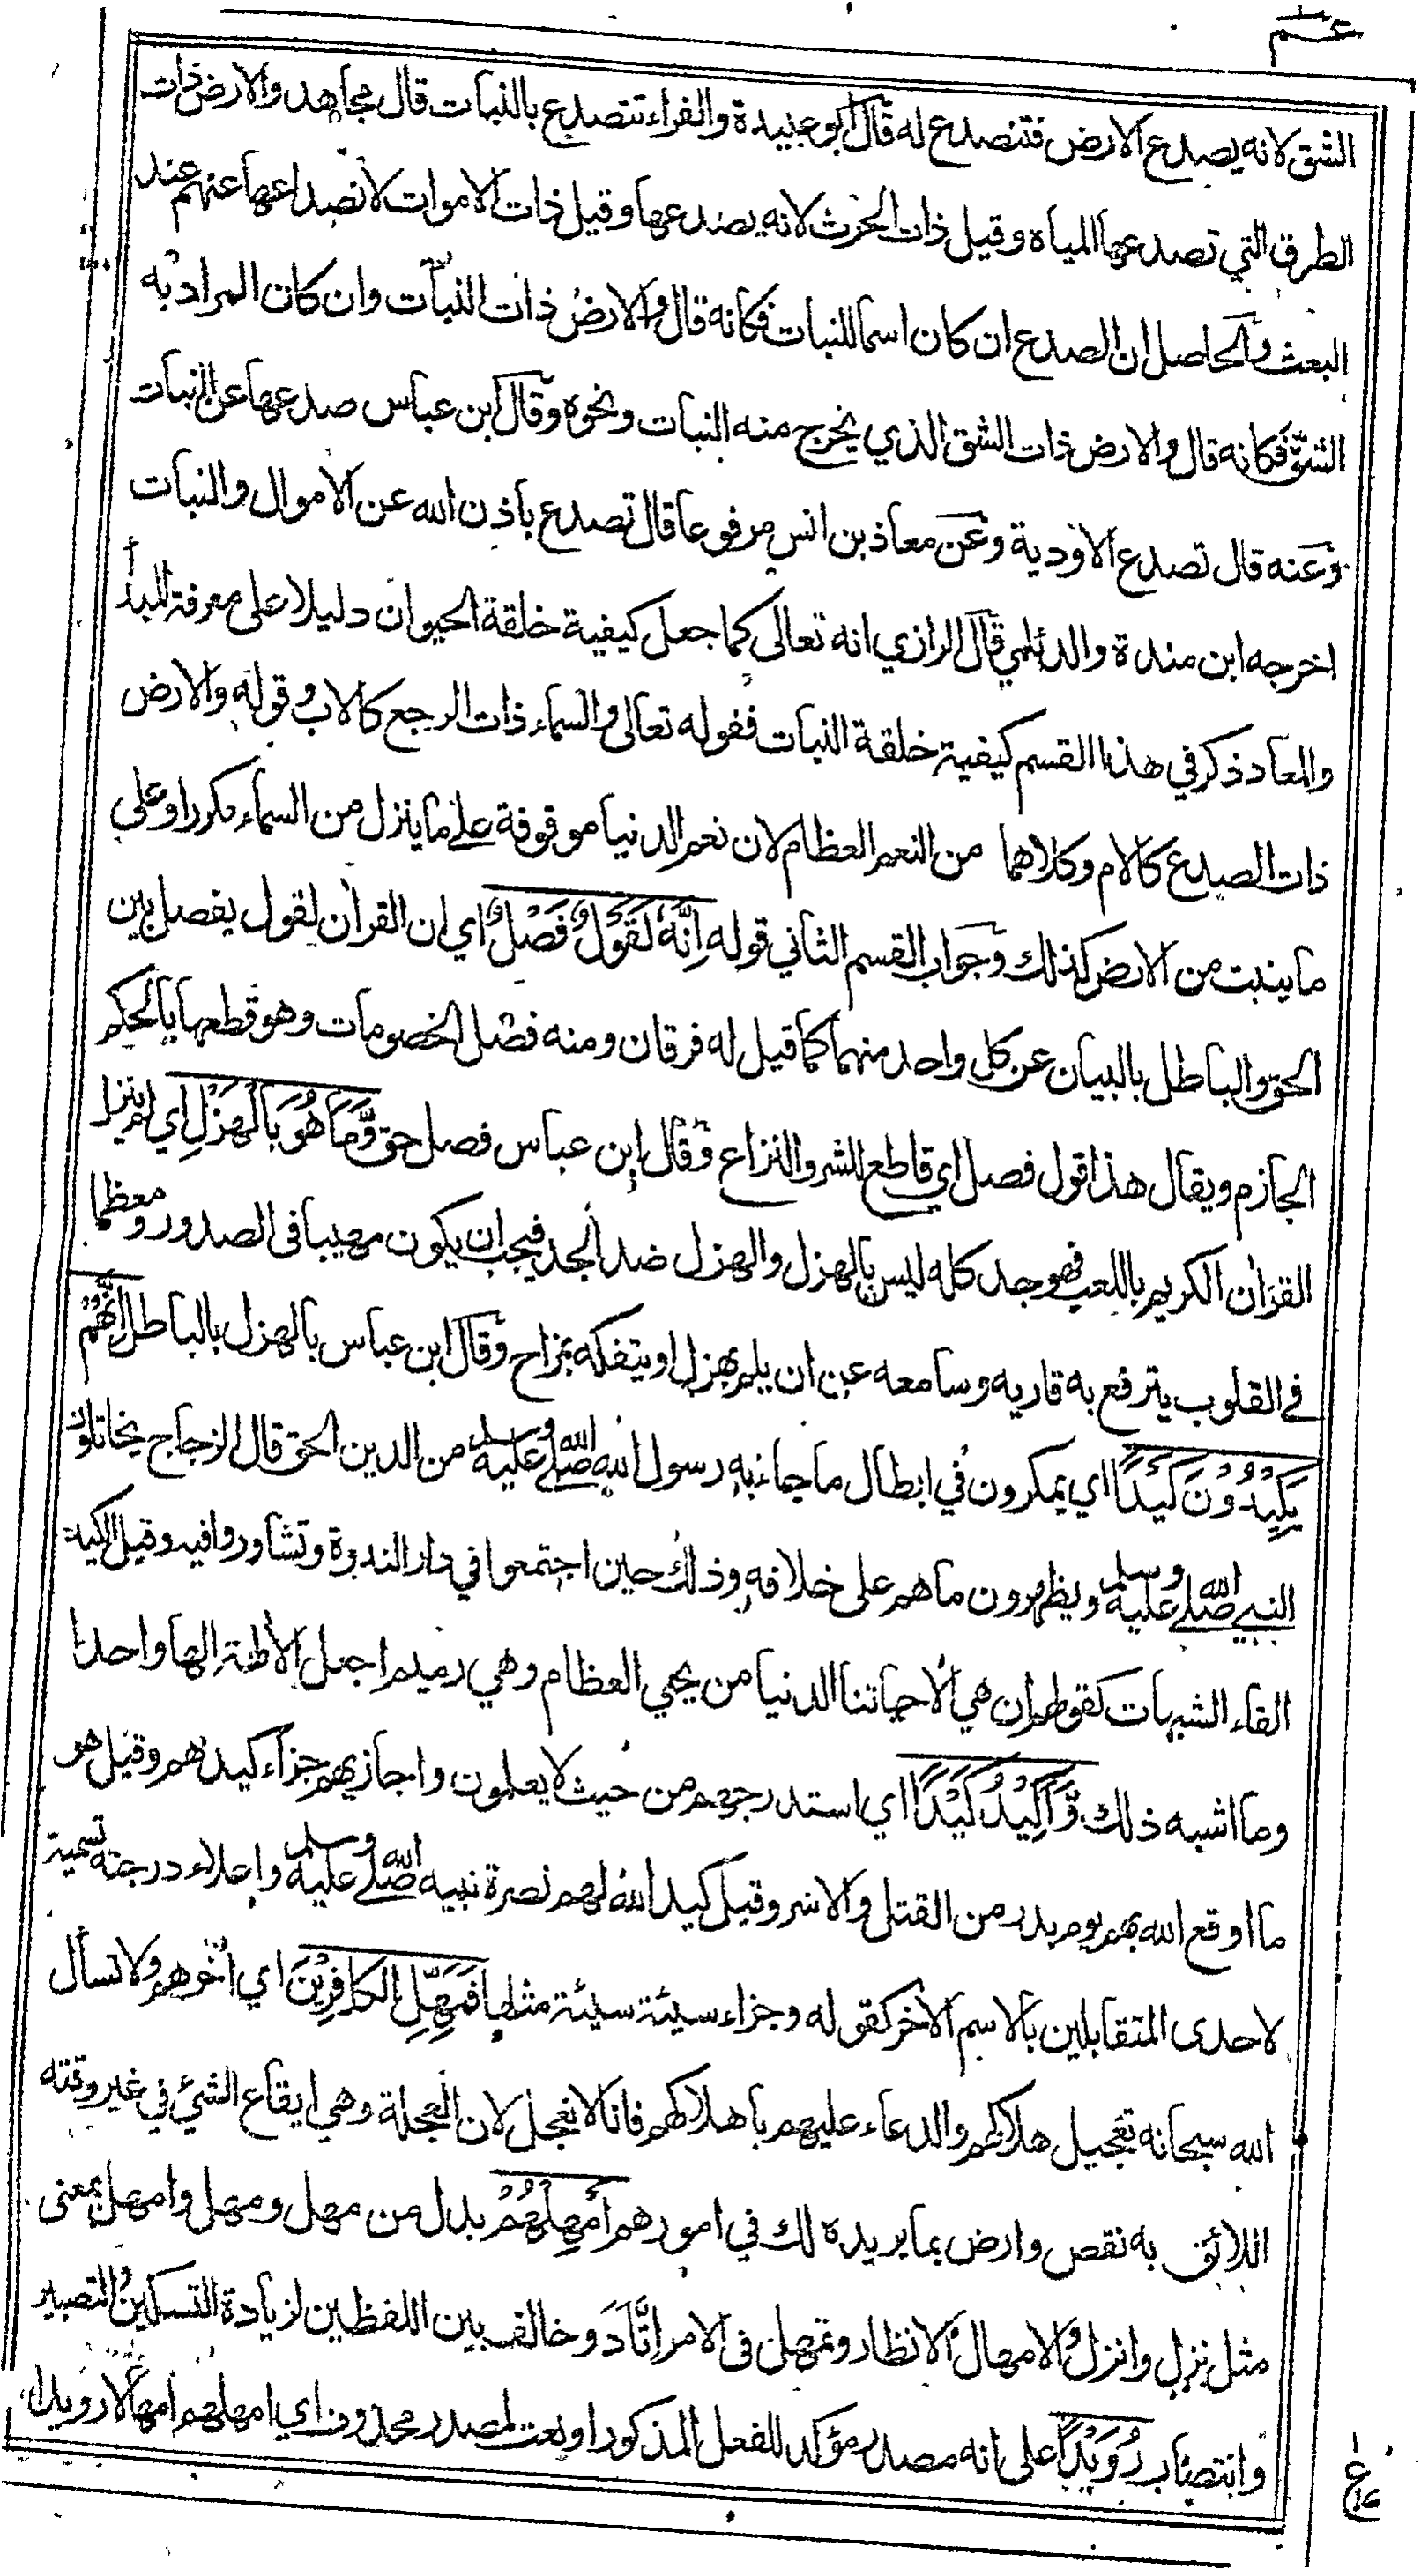 عم
الشق لانه يصدع الارض فتنصدع له قال ابو عبيدة والفراء تتصدع بالنبات قال مجاهد والارض ذات
الطرق التي تصدعها المياه وقيل ذات الحرث لانه يصدعها وقيل ذات الاموات لانصداعها عنهم عند
البعث والحاصل ان الصدع ان كان اسما للنبات فكانه قال والارض ذات النبات وان كان المراد به
الشق فكانه قال والارض ذات الشق الذي يخرج منه النبات ونحوه وقال ابن عباس صدعها عن النبات
وعنه قال تصدع الاودية وعن معاذ بن انس مرفوعا قال تصدع باذن الله عن الاموال والنبات
اخرجه ابن مندة والديلمي قال الرازي انه تعالى كما جعل كيفية خلقة الحيوان دليلا على معرفة المبدأ
والمعاد ذكر في هذا القسم كيفية خلقة النبات فقوله تعالى والسماء ذات الرجع كالاب وقوله والارض
ذات الصدع كالام وكلاهما من النعم العظام لان نعم الدنيا موقوفة على ما ينزل من السماء مكررا وعلى
ما ينبت من الارض كذلك وجواب القسم الثاني قوله اِنَّهٗ لَقَوْلٌ فَصْلٌ اي ان القران لقول يفصل بين
الحق والباطل بالبيان عن كل واحد منهما كما قيل له فرقان ومنه فصل الخصومات وهو قطعها بالحكم
الجازم ويقال هذا قول فصل اي قاطع للشر والنزاع وقال ابن عباس فصل حق وَّمَا هُوَ بِالْهَزْلِ اي لم ينزل
القران الكريم باللعب فهو جد كله ليس بالهزل والهزل ضد الجد فيجب ان يكون مهيبا فى الصدور ومعظما
في القلوب يترفع به قاريه وسامعه عن ان يلم بهزل او يتفكه بمزاح وقال ابن عباس بالهزل بالباطل اِنَّهُمْ
يَكِيْدُوْنَ كَيْدًا اي يمكرون في ابطال ما جاء به رسول الله صلى الله عليه وسلم من الدين الحق قال الزجاج يخاتلون
النبي صلى الله عليه وسلم ويظهرون ما هم على خلافه وذلك حين اجتمعوا في دار الندوة وتشاوروا فيه وقيل الكيد
القاء الشبهات كقولهم ان هي الا حياتنا الدنيا من يحيي العظام وهي رميم اجعل الالهة الها واحدا
وما اشبه ذلك وَّاَكِيْدُ كَيْدًا اي استدرجهم من حيث لا يعلمون واجازيهم جزاء كيدهم وقيل هو
ما اوقع الله بهم يوم بدر من القتل والاسر وقيل كيد الله لهم نصرة نبيه صلى الله عليه وسلم واعلاء درجته تسمية
لاحدى المتقابلين بالاسم الاخر كقوله وجزاء سيئة سيئة مثلها فَمَهِّلِ الْكَافِرِيْنَ اي اخرهم ولا تسأل
الله سبحانه تعجيل هلاكهم والدعاء عليهم باهلاكهم فانا لا نعجل لان العجلة وهي ايقاع الشئ في غير وقته
اللائق به نقص وارض بما يريده لك في امورهم اَمْهِلْهُمْ بدل من مهل ومهل وامهل بمعنى
مثل نزل وانزل والامهال الانظار وتمهل فى الامر اتَّأَدَ وخالف بين اللفظين لزيادة التسكين والتصبير
وانتصاب رُوَيْدًا على انه مصدر مؤكد للفعل المذكور او نعت لمصدر محذوف اي امهلهم امهالا رويدا